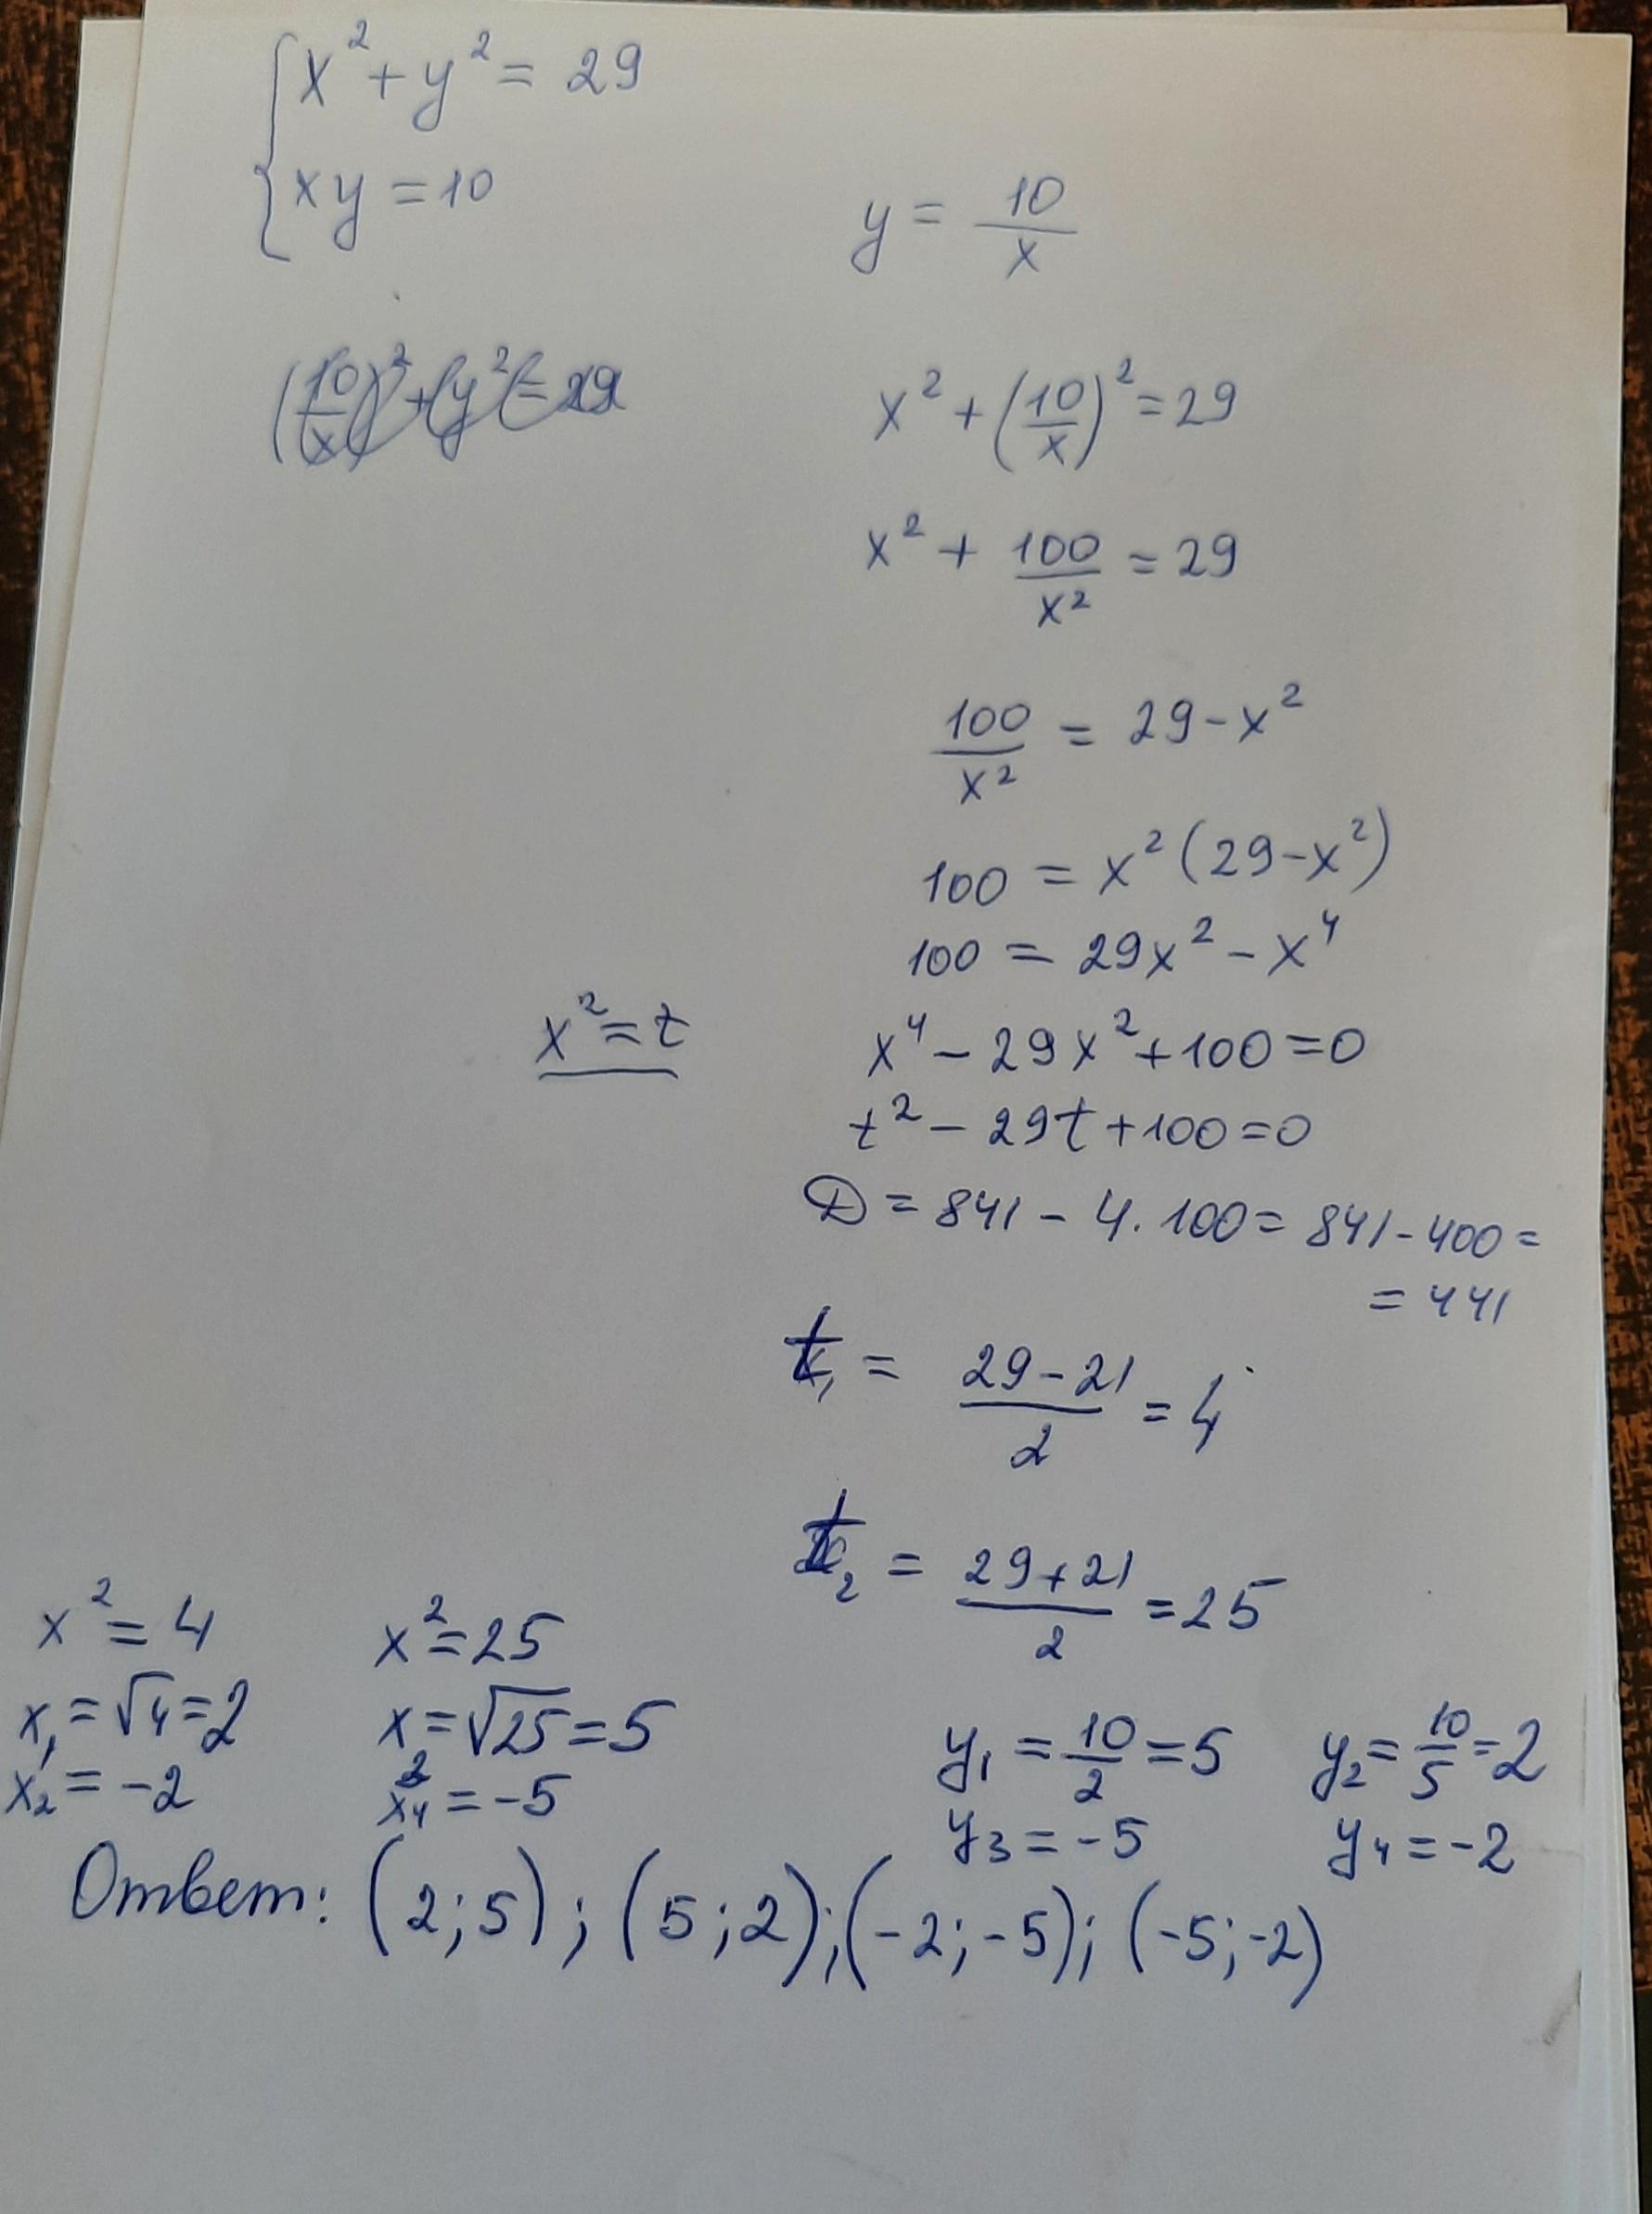 x² + y² = 29
xy = 10
y = 10/x
(10/x)² + y² = 29
x² + (10/x)² = 29
x² + 100/x² = 29
100/x² = 29 - x²
100 = x²(29 - x²)
100 = 29x² - x⁴
x² = t
x⁴ - 29x² + 100 = 0
t² - 29t + 100 = 0
D = 841 - 4·100 = 841 - 400 =
= 441
t₁ = (29 - 21)/2 = 4
t₂ = (29 + 21)/2 = 25
x² = 4
x₁ = √4 = 2
x₂ = -2
x² = 25
x = √25 = 5
x₄ = -5
y₁ = 10/2 = 5
y₃ = -5
y₂ = 10/5 = 2
y₄ = -2
Ответ: (2; 5); (5; 2); (-2; -5); (-5; -2)